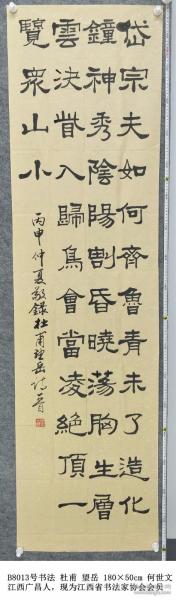 岱宗夫如何齊魯青未了造化
鐘神秀陰陽割昏曉蕩胸生層
雲決眥入歸鳥會當凌絕頂一
覽眾山小
丙申仲夏敬錄杜甫望岳詩
B8013号书法 杜甫 望岳 180×50cm 何世文
江西广昌人，现为江西省书法家协会会员